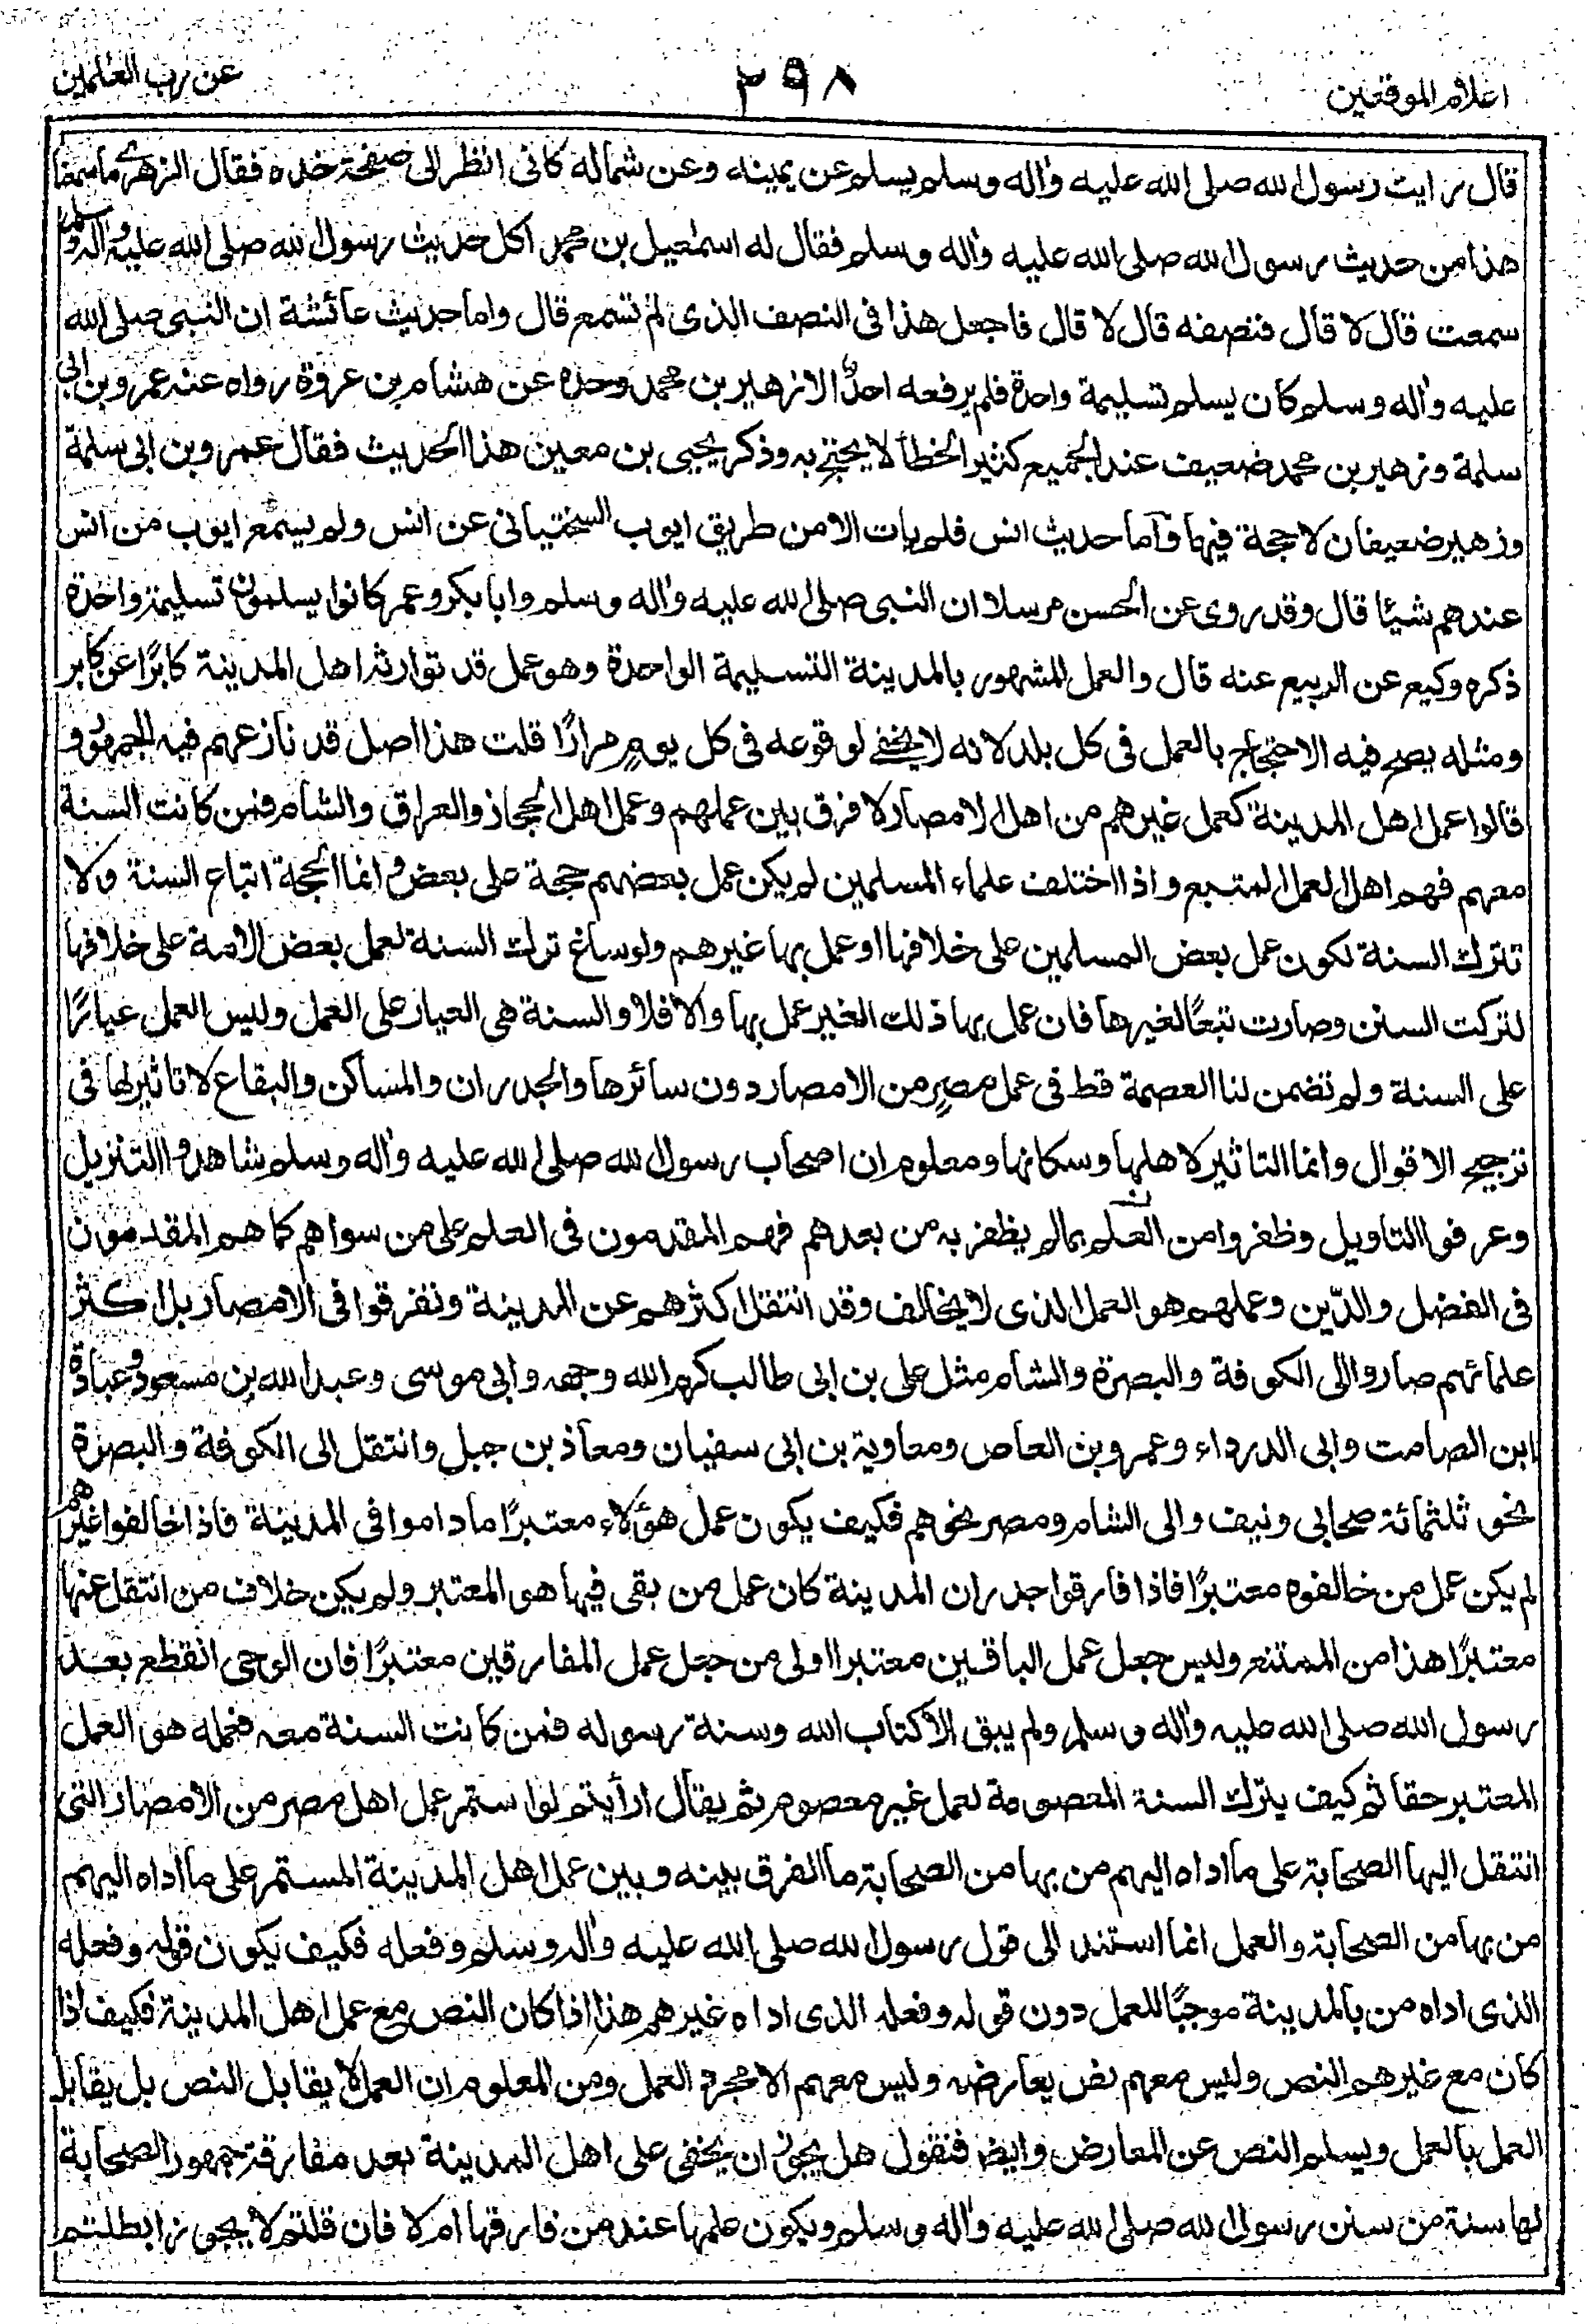 اعلام الموقعين
٢٩٨
عن رب العلمين
قال رايت رسول الله صلى الله عليه واله وسلم يسلم عن يمينه وعن شماله كانى انظر الى صفحة خده فقال الزهرى ما سمعنا
هذا من حديث رسول الله صلى الله عليه واله وسلم فقال له اسمعيل بن محمد اكل حديث رسول الله صلى الله عليه واله وسلم
سمعت قال لا قال فنصفه قال لا قال فاجعل هذا فى النصف الذى لم تسمع قال واما حديث عائشة ان النبى صلى الله
عليه واله وسلم كان يسلم تسليمة واحدة فلم يرفعه احدٌ الا زهير بن محمد وحده عن هشام بن عروة رواه عنه عمرو بن ابى
سلمة وزهير بن محمد ضعيف عند الجميع كثير الخطأ لا يحتج به وذكر يحيى بن معين هذا الحديث فقال عمرو بن ابى سلمة
وزهير ضعيفان لا حجة فيهما واما حديث انس فلم يات الا من طريق ايوب السختيانى عن انس ولم يسمع ايوب من انس
عندهم شيئا قال وقد روى عن الحسن مرسلا ان النبى صلى الله عليه واله وسلم وابا بكر وعمر كانوا يسلمون تسليمة واحدة
ذكره وكيع عن الربيع عنه قال والعمل المشهور بالمدينة التسليمة الواحدة وهو عمل قد توارثه اهل المدينة كابرًا عن كابر
ومثله يصح فيه الاحتجاج بالعمل فى كل بلد لانه لا يخفى لوقوعه فى كل يومٍ مرارًا قلت هذا اصل قد نازعهم فيه الجمهور و
قالوا عمل اهل المدينة كعمل غيرهم من اهل الامصار لا فرق بين عملهم وعمل اهل الحجاز والعراق والشام فمن كانت السنة
معهم فهم اهل العمل المتبع واذا اختلف علماء المسلمين لم يكن عمل بعضهم حجة على بعض وانما الحجة اتباع السنة ولا
تترك السنة لكون عمل بعض المسلمين على خلافها او عمل بها غيرهم ولو ساغ ترك السنة لعمل بعض الامة على خلافها
لتركت السنن وصارت تبعًا لغيرها فان عمل بها ذلك الغير عمل بها والا فلا والسنة هى العيار على العمل وليس العمل عيارًا
على السنة ولم تضمن لنا العصمة قط فى عمل مصرٍ من الامصار دون سائرها والجدران والمساكن والبقاع لا تاثير لها فى
ترجيح الاقوال وانما التاثير لاهلها وسكانها ومعلوم ان اصحاب رسول الله صلى الله عليه واله وسلم شاهدوا التنزيل
وعرفوا التاويل وظفروا من العلم بما لم يظفر به من بعدهم فهم المقدمون فى العلم على من سواهم كما هم المقدمون
فى الفضل والدّين وعملهم هو العمل الذى لا يخالف وقد انتقل اكثرهم عن المدينة وتفرقوا فى الامصار بل اكثر
علمائهم صاروا الى الكوفة والبصرة والشام مثل على بن ابى طالب كرم الله وجهه وابى موسى وعبد الله بن مسعود وعبادة
ابن الصامت وابى الدرداء وعمرو بن العاص ومعاوية بن ابى سفيان ومعاذ بن جبل وانتقل الى الكوفة والبصرة
نحو ثلثمائة صحابى ونيف والى الشام ومصر نحوهم فكيف يكون عمل هؤلاء معتبرًا ما داموا فى المدينة فاذا خالفوا غيرهم
لم يكن عمل من خالفوه معتبرًا فاذا فارقوا جدران المدينة كان عمل من بقى فيها هو المعتبر ولم يكن خلاف من انتقل عنها
معتبرًا هذا من الممتنع وليس جعل عمل الباقين معتبرا اولى من جعل عمل المفارقين معتبرًا فان الوحى انقطع بعد
رسول الله صلى الله عليه واله وسلم ولم يبق الا كتاب الله وسنة رسوله فمن كانت السنة معه فعمله هو العمل
المعتبر حقا ثم كيف يترك السنة المعصومة لعمل غير معصوم ثم يقال ارأيتم لو استمر عمل اهل مصر من الامصار التى
انتقل اليها الصحابة على ما اداه اليهم من بها من الصحابة ما الفرق بينه وبين عمل اهل المدينة المستمر على ما اداه اليهم
من بها من الصحابة والعمل انما استند الى قول رسول الله صلى الله عليه واله وسلم وفعله فكيف يكون قوله وفعله
الذى اداه من بالمدينة موجبًا للعمل دون قوله وفعله الذى اداه غيرهم هذا اذا كان النص مع عمل اهل المدينة فكيف اذا
كان مع غيرهم النص وليس معهم نص يعارضه وليس معهم الا مجرد العمل ومن المعلوم ان العمل لا يقابل النص بل يقابل
العمل بالعمل ويسلم النص عن المعارض وايضا فنقول هل يجوز ان يخفى على اهل المدينة بعد مفارقة جمهور الصحابة
لها سنة من سنن رسول الله صلى الله عليه واله وسلم ويكون علمها عند من فارقها ام لا فان قلتم لا يجوز ابطلتم